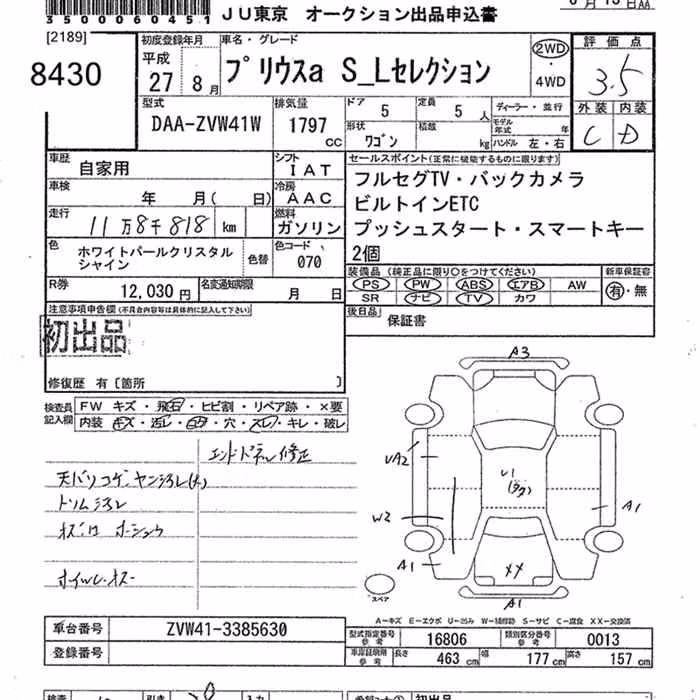 350060451 JU東京 オークション出品申込書
[2189]
8430
初度登録年月
平成
27 8月
車名・グレード
プリウスa S_Lセレクション
2WD
・
4WD
評価点
3.5
外装 内装
C D
型式
DAA-ZVW41W
排気量
1797 cc
ドア 5
定員 5 人
形状 ワゴン
積載 kg
ディーラー・並行
モデル年式 年
ハンドル 左・右
車歴
自家用
シフト
IAT
車検
年 月( 日)
冷房
AAC
走行
11万8千818 km
燃料
ガソリン
色
ホワイトパールクリスタル
シャイン
色替
色コード
070
R券
12,030円
名変通知期限
月 日
セールスポイント(正常に機能するものに限ります)
フルセグTV・バックカメラ
ビルトインETC
プッシュスタート・スマートキー
2個
装備品(純正品に限り○をつけてください)
新車保証書
PS PW ABS エアB AW
有・無
SR ナビ TV カワ
後日品
保証書
注意事項申告欄(不具合内容等は具体的に記入して下さい)
初出品
修復歴 有〔箇所 〕
検査員
記入欄
FW キズ・飛石・ヒビ割・リペア跡・×要
内装 キズ・汚レ・凹・穴・スレ・キレ・破レ
エンドパネル修正
トリム
ホイルキズ
A3
UA2
U1
A1
W2
A1
XX
A1
スペア
A-キズ E-エクボ U-凹み W-補修跡 S-サビ C-腐食 XX-交換済
車台番号
ZVW41-3385630
登録番号
型式指定番号
参考
16806
類別区分番号
参考
0013
車庫証明用
参考
長さ 463 cm
幅 177 cm
高さ 157 cm
初出品